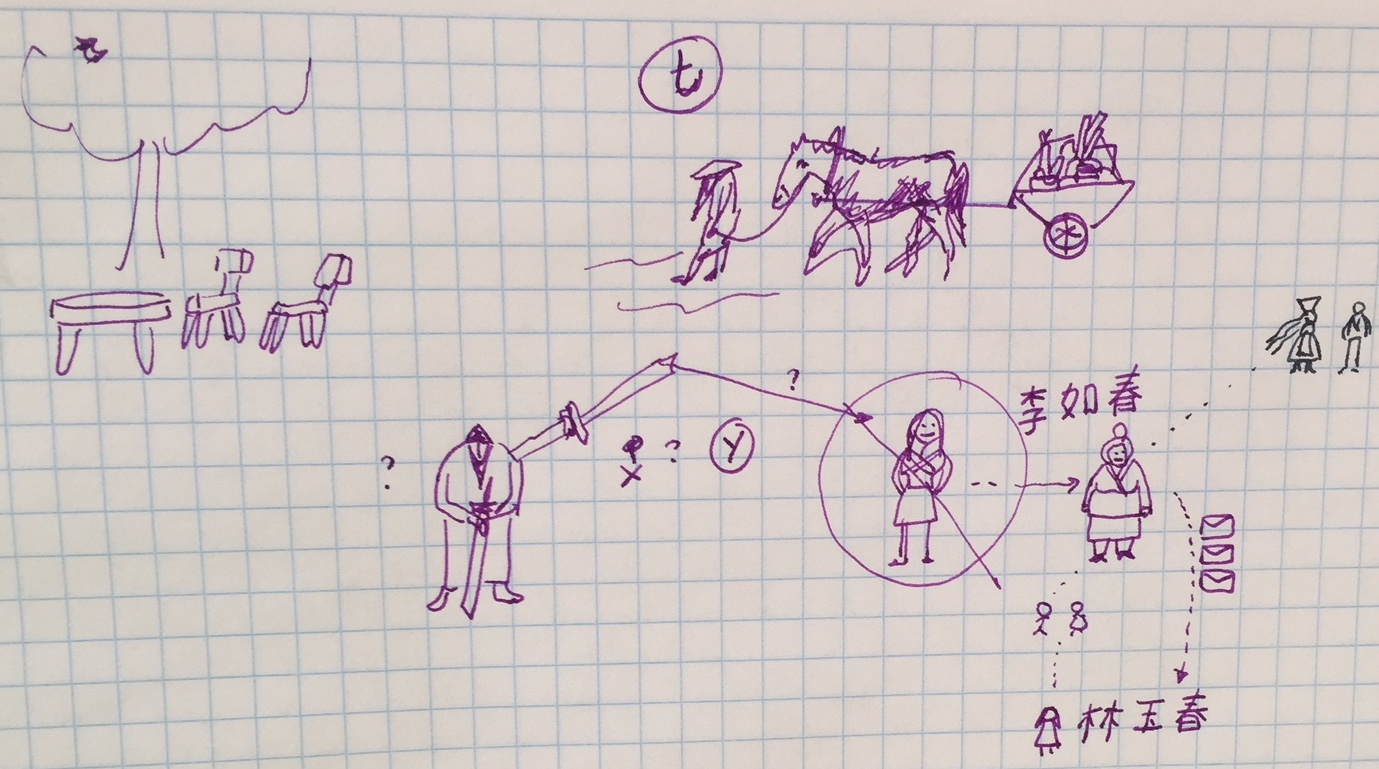 t
?
李如春
?
? Y
林玉春